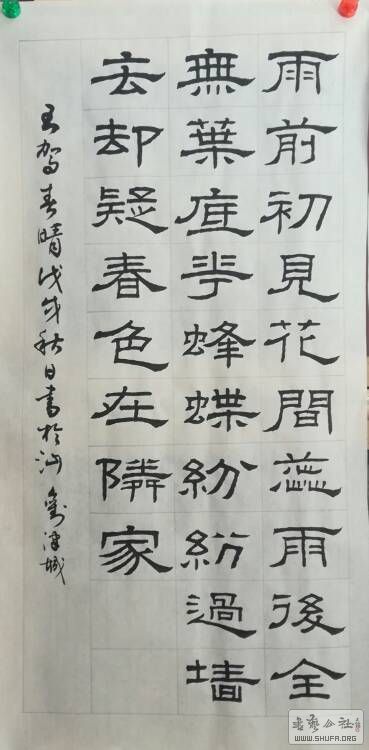 雨前初見花間蕊雨後全
無葉底花蜂蝶紛紛過墙
去却疑春色在隣家
王驾春晴戊戌秋日書於
書藝公社
WWW.SHUFA.ORG